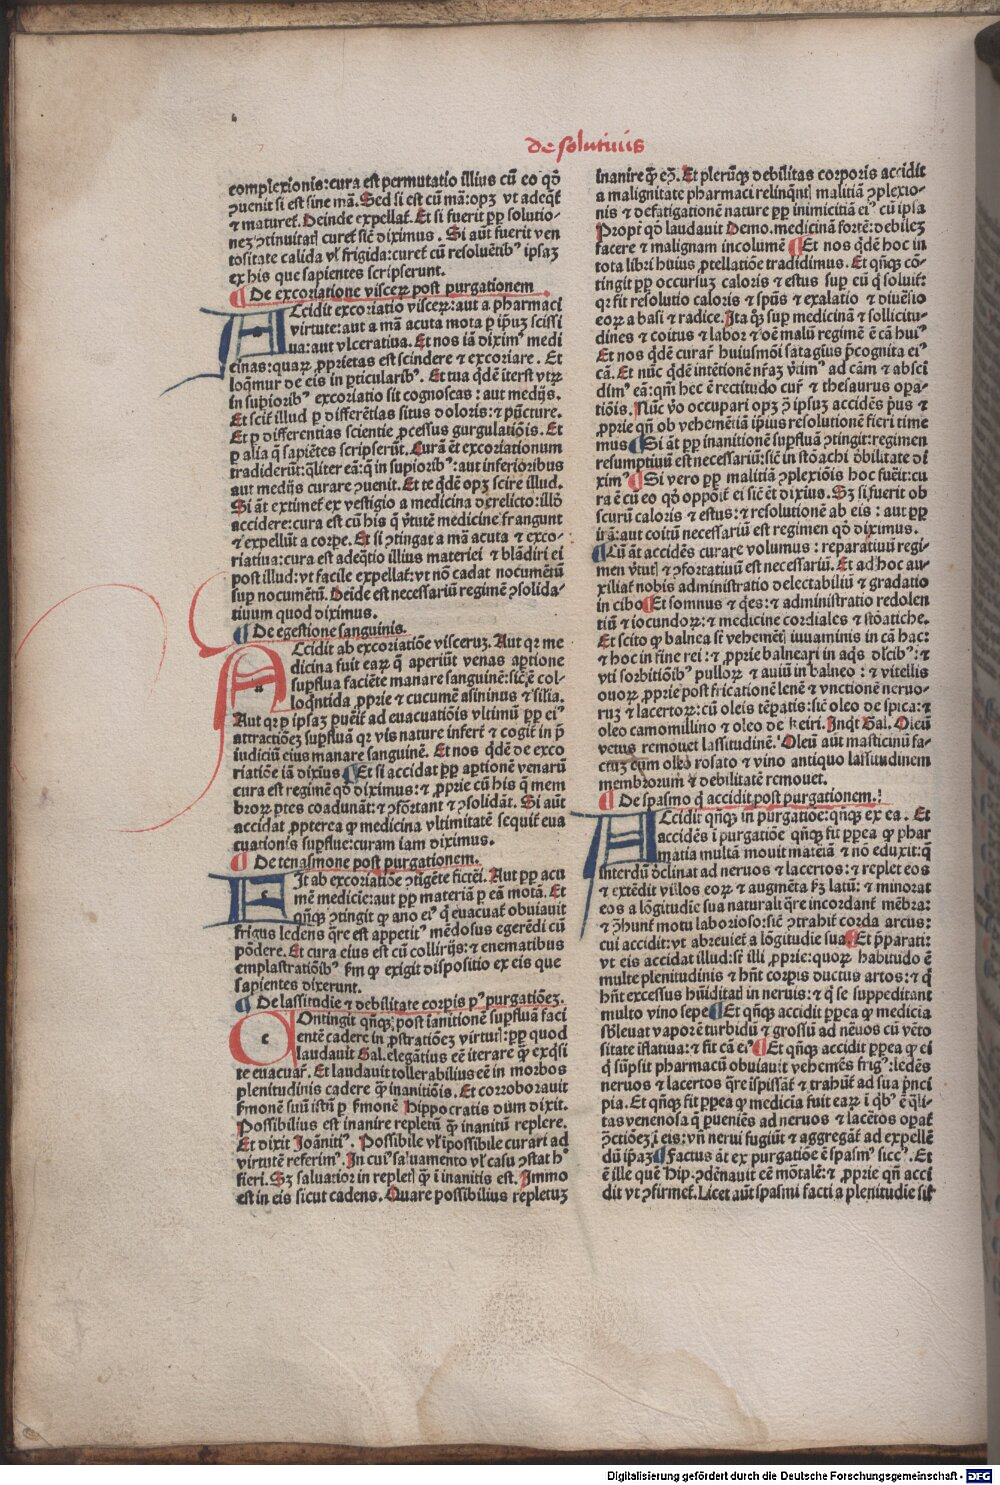 de solutiuis
complexionis:cura est permutatio illius cū eo qđ
ꝯuenit si est sine mā. Sed si est cū mā:opꝫ vt adeqt̉
⁊ maturet̉. Deinde expellat̉. Et si fuerit ꝓꝑ solutio-
neꝫ ꝯtinuitatꝭ curet̉ sič diximus. Si aūt fuerit ven
tositate calida vl̉ frigida:curet̉ cū resoluētibꝰ ipsaꝫ
ex his que sapientes scripserunt.
¶ De excoriatione visceꝝ post purgationem
Accidit excoriatio visceꝝ:aut a pharmaci
virtute:aut a mā acuta mota ꝑ ip̄ꝫ scissi
ua:aut vlceratiua. Et nos iā diximꝰ medi
cinas:quaꝝ ꝓprietas est scindere ⁊ excoriare. Et
loqmur de eis in ꝑticularibꝰ. Et tua qdē iterst vtꝝ
in suꝑioribꝰ excoriatio sit cognoscas:aut medijs.
Et scit̉ illud ꝑ differētias situs doloris:⁊ pūcture.
Et ꝑ differentias scientie ꝓcessus gurgulatiōis. Et
ꝑ alia q̄ sapiētes scripserūt. Curā ēt excoriationum
tradiderūt:qliter eā:q̄ in suꝑioribꝰ:aut inferioribus
aut medijs curare ꝯuenit. Et te qdē opꝫ scire illud.
Si āt extimet̉ ex vestigio a medicina derelicto:illđ
accidere:cura est cū his q̄ vtute medicine frangunt
⁊ expellūt a corꝑe. Et si ꝯtingat a mā acuta ⁊ exco-
riatiua:cura est adeqtio illius materiei ⁊ blādiri ei
post illud:vt facile expellat̉:vt nō cadat nocumētū
suꝑ nocumētū. Deīde est necessariū regimē ꝯsolida-
tiuum quod diximus.
¶ De egestione sanguinis.
Accidit ab excoriatiōe visceruꝫ. Aut qr me
dicina fuit eaꝝ q̄ aperiūt venas aꝑtione
suꝑflua faciēte manare sanguinē:sič ē col-
loqntida ꝓprie ⁊ cucumē asininus ⁊ silia.
Aut qr ꝑ ipsaꝫ puēit̉ ad euacuatiōis vltimū ꝓꝑ eiꝰ
attractiōeꝫ suꝑfluā qr vis nature infert̉ ⁊ cogit̉ in p̄
iudiciū eius manare sanguinē. Et nos qdē de exco
riatiōe iā dixiꝰ ¶ Et si accidat ꝓꝑ aꝑtionē venarū
cura est regimē qđ diximus:⁊ ꝓprie cū his q̄ mem
broꝝ ꝑtes coadunāt:⁊ ꝯfortant ⁊ ꝯsolidāt. Si aūt
accidat ꝓpterea qꝙ medicina vltimitatē sequit̉ eua
cuationis suꝑflue:curam iam diximus.
¶ De tenasmone post purgationem.
Fit ab excoriatiōe ꝯtigēte fictei. Aut ꝓꝑ acu
mē medicie:aut ꝓꝑ materiā ꝑ eā motā. Et
qn̄qꝫ ꝯtingit qꝙ ano eiꝰ q̄ euacuat̉ obuiauit
frigus ledens qre est appetitꝰ mēdosus egerēdi cū
pōdere. Et cura eius est cū collirijs:⁊ enematibus
emplastratiōibꝰ km̄ qꝙ exigit dispositio ex eis que
sapientes dixerunt.
¶ De lassitudie ⁊ debilitate corꝑis pꝰ purgatiōeꝫ.
Contingit qn̄qꝫ post īanitionē suꝑfluā faci
entē cadere in ꝓstratiōeꝫ virtutꝭ:ꝓꝑ quod
laudauit Gal. elegātius eē iterare qꝙ exqsi
te euacuar̉. Et laudauit tollerabilius eē in morbos
plenitudinis cadere qꝙ inanitiōis. Et corroborauit
ẜmonē suū istū ꝑ ẜmonē Hippocratis dum dixit.
Possibilius est inanire repletū qꝙ inanitū replere.
Et dixit Joānitiꝰ. Possibile vl̉ īpossibile curari ad
virtutē referimꝰ. In cuiꝰ saluamento vl̉ casu ꝯstat hꝰ
fieri. Sꝫ saluatior in repletꝭ qꝙ ī inanitis est. Immo
est in eis sicut cadens. Quare possibilius repletuꝫ
inanire qꝙ eꝫ. Et plerūqꝫ debilitas corporis accidit
a malignitate pharmaci relinqntꝭ malitiā ꝯplexio-
nis ⁊ defatigationē nature ꝓꝑ inimicitiā eiꝰ cū ipsa
Propt̉ qđ laudauit Demo. medicinā fortē:debileꝫ
facere ⁊ malignam incolumē ¶ Et nos qdē hoc in
tota libri huius ꝓtellatiōe tradidimus. Et qn̄qꝫ cō-
tingit ꝓꝑ occursuꝫ caloris ⁊ estus suꝑ eū q̄ soluit̉:
qr fit resolutio caloris ⁊ spūs ⁊ exalatio ⁊ diuēsio
eoꝝ a basi ⁊ radice. Ita qꝫ suꝑ medicinā ⁊ sollicitu-
dines ⁊ coitus ⁊ labor ⁊ oē malū regimē ē cā huiꝰ
Et nos qdē curar̉ huiusmōi satagiꝰs p̄cognita eiꝰ
cā. Et nūc qdē intētionē nr̄aꝫ v̄timꝰ ad cām ⁊ absci
dimꝰ eā:qm̄ hec ē rectitudo cur̉ ⁊ thesaurus oꝑa-
tiōis. Nūc v̄o occupari opꝫ ꝯ ipsuꝫ accidēs p̄us ⁊
ꝓprie qn̄ ob vehemētiā ip̄ius resolutionē fieri time
mus ¶ Si āt ꝓꝑ inanitionē suꝑfluā ꝯtingit:regimen
resumptiuū est necessariū:sič in stōachi đbilitate di
ximꝰ ¶ Si vero ꝓꝑ malitiā ꝯplexiōis hoc fuēit:cu
ra ē cū eo qđ oppōit̉ ei sič ēt dixiꝰs. Sꝫ si fuerit ob
scurū caloris ⁊ estus:⁊ resolutionē ab eis:aut ꝓꝑ
irā:aut coitū necessariū est regimen qđ diximus.
¶ Cū āt accidēs curare volumus:reparatiuū regi-
men v̄tutꝭ ⁊ ꝯfortatiuū est necessariū. Et ad hoc au-
xiliat̉ nobis administratio delectabiliū ⁊ gradatio
in cibo ¶ Et somnus ⁊ qes:⁊ administratio redolen
tiū ⁊ iocundoꝝ:⁊ medicine cordiales ⁊ stōatiche.
Et scito qꝙ balnea sī vehemētꝭ iuuaminis in cā hac:
⁊ hoc in fine rei:⁊ ꝓprie balneari in aqs dlcibꝰ:⁊
vti sorbitiōibꝰ pulloꝝ ⁊ auiū in balneo:⁊ vitellis
ouoꝝ ꝓprie post fricationē lenē ⁊ vnctionē neruo-
ruꝫ ⁊ lacertoꝝ:cū oleis tēꝑatis:sič oleo de spica:⁊
oleo camomillino ⁊ oleo de keiri. Inqt Gal. Oleū
vetus remouet lassitudinē. Oleū aūt masticinū fa-
ctuꝫ cum oleo rosato ⁊ vino antiquo lassitudinem
membrorum ⁊ debilitatē remouet.
¶ De spasmo q̄ accidit post purgationem.
Accidit qn̄qꝫ in purgatiōe:qn̄qꝫ ex ea. Et
accidēs ī purgatiōe qn̄qꝫ fit ꝓꝑea qꝙ phar
matia multā mouit mateiā ⁊ nō eduxit:q̄
interdū đclinat ad neruos ⁊ lacertos:⁊ replet eos
⁊ extēdit villos eoꝝ ⁊ augmēta kꝫ latū:⁊ minorat
eos a lōgitudie sua naturali qre incordant̉ mēbra:
⁊ ꝯhunt̉ motu laborioso:sič ꝯtrahit̉ corda arcus:
cui accidit:vt abreuiet̉ a lōgitudie sua ¶ Et p̄parati:
vt eis accidat illud:st̄ illi ꝓprie:quoꝝ habitudo ē
multe plenitudinis ⁊ hn̄t corꝑis ductus artos:⁊ q̄
hn̄t excessus hūiditatꝭ in neruis:⁊ q̄ se suppeditant
multo vino sepe ¶ Et qn̄qꝫ accidit ꝓꝑea qꝙ medicia
sƀleuat vaporē turbidū ⁊ grossiū ad nēuos cū vēto
sitate īflatiua:⁊ fit cā eiꝰ ¶ Et qn̄qꝫ accidit ꝓꝑea qꝙ ei
q̄ sūpsit pharmacū obuiauit vehemēs frigꝰ:ledēs
neruos ⁊ lacertos qre īspissāt̉ ⁊ trahūt̉ ad sua p̄nci
pia. Et qn̄qꝫ fit ꝓꝑea qꝙ medicīa fuit eaꝝ ī qbꝰ ē qli-
tas venenosa q̄ ꝑueniēs ad neruos ⁊ lacētos oꝑat̉
ꝯctiōeꝫ ī eis:vn̄ nerui fugiūt ⁊ aggregāt̉ ad expellē
dū ip̄aꝫ ¶ Factus āt ex purgatiōe ē spasmꝰ siccꝰ. Et
ē ille quē Hip. ꝯdēnauit eē mōtalē:⁊ ꝓprie qn̄ acci
dit vt ꝯfirmet̉. Licet aūt spasmi facti a plenitudie sit̉
Digitalisierung gefördert durch die Deutsche Forschungsgemeinschaft - DFG